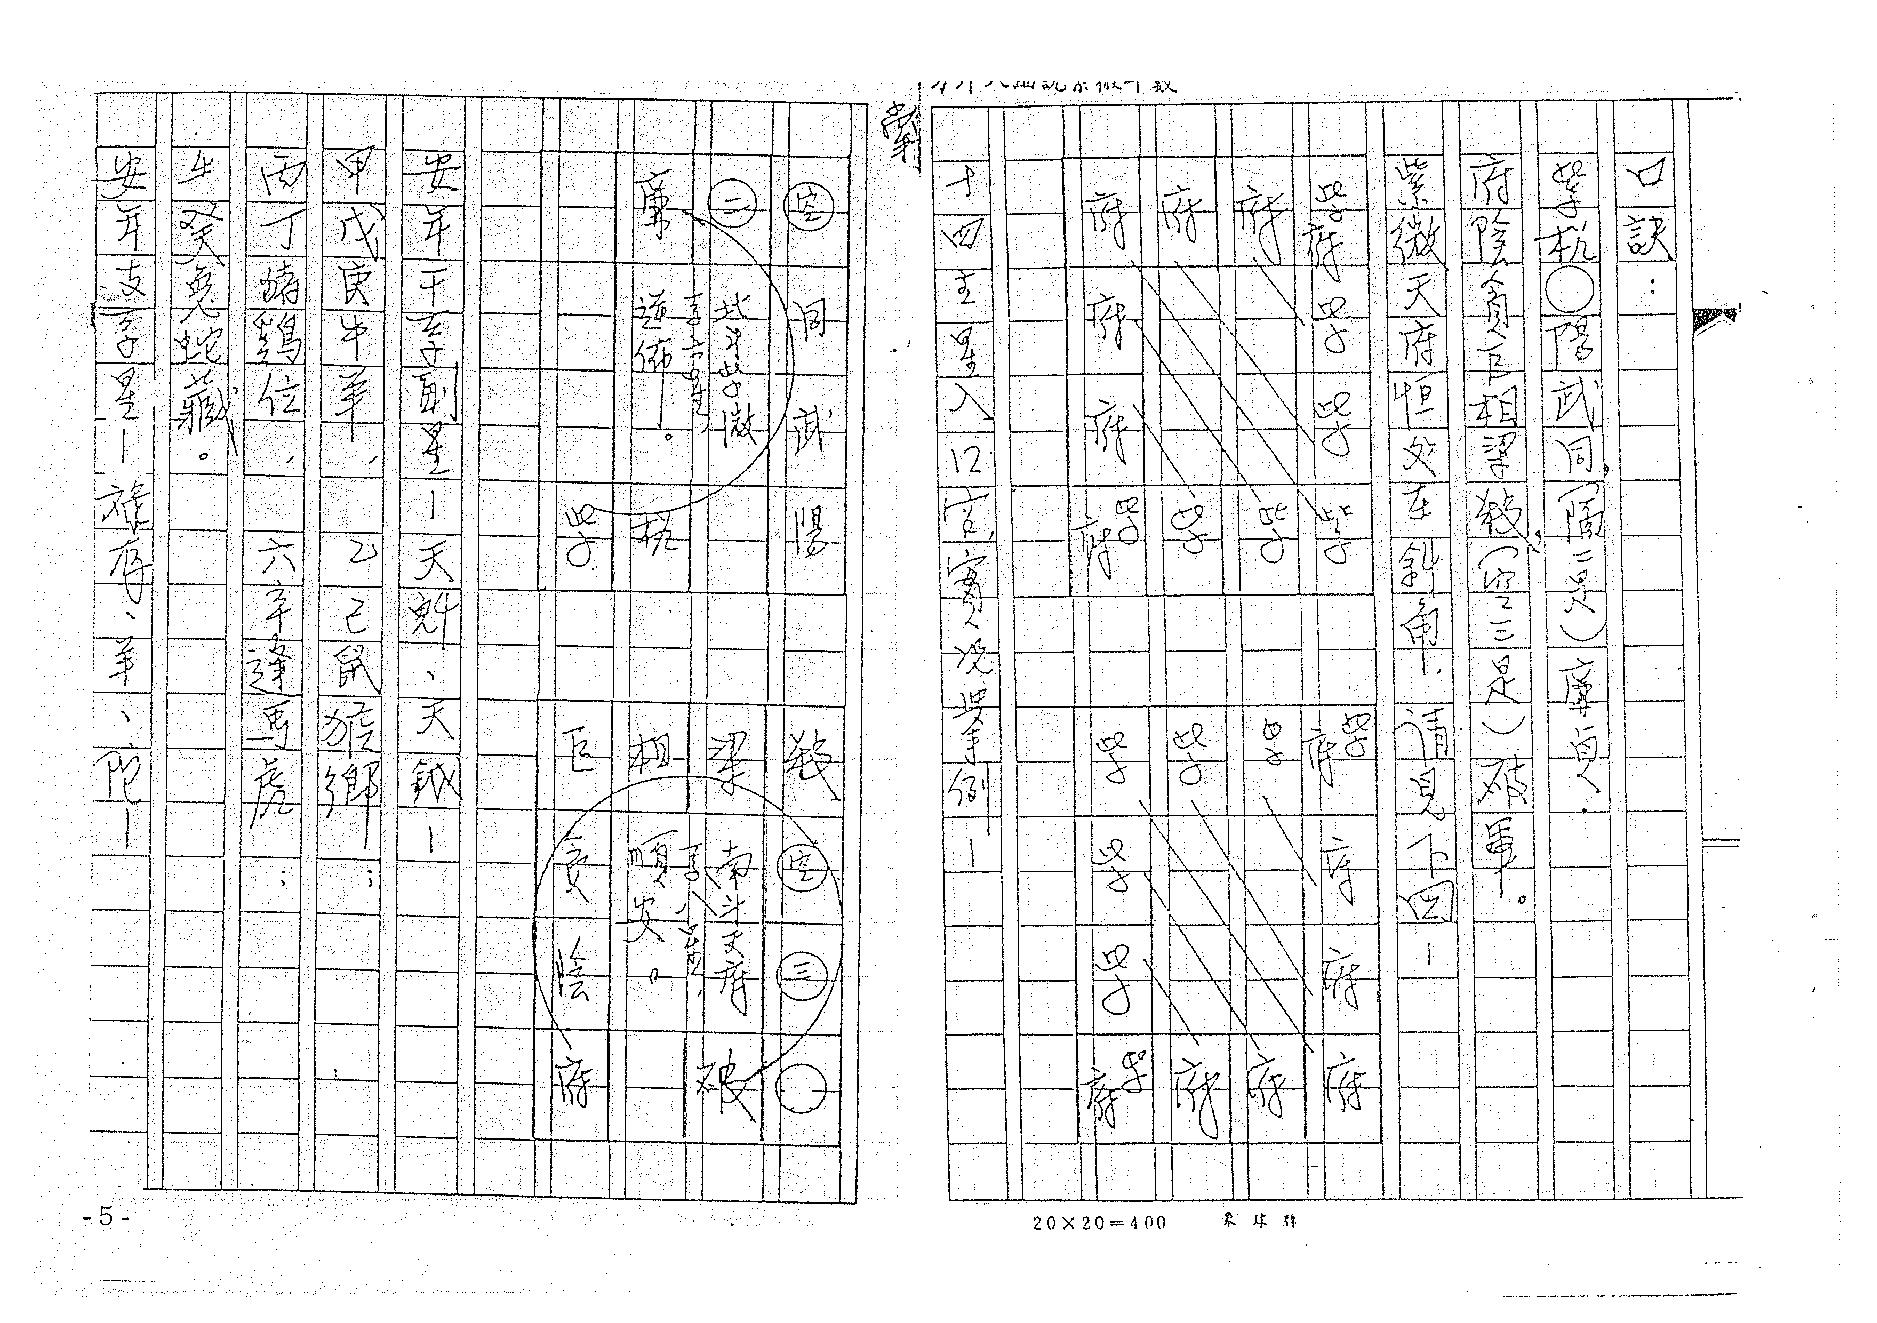 口訣：
紫机○陽武同，(隔二是)廉貞．
府陰貪巨相梁殺，(空三是)破軍。
紫微天府恒处在斜角、請見下図—
紫府 紫 紫 紫
府 紫
府 紫
府 府 府 紫府
紫府 府 府 府
紫 府
紫 府
紫 紫 紫 紫府
十四主星入12宮實况舉例—
空 同 武 陽
二 北斗紫微
系六星，
廉 逆佈。 机
紫
殺 空 三 ○
梁 南斗天府 破
系八星，
相 順安。
巨 貪 陰 府
安年干系副星—天魁、天鉞—
甲戊庚牛羊， 乙己鼠猴鄉；
丙丁豬鷄位， 六辛逢馬虎；
壬癸兔蛇藏。
安年支系星—祿存、羊、陀—
-5-
20×20=400